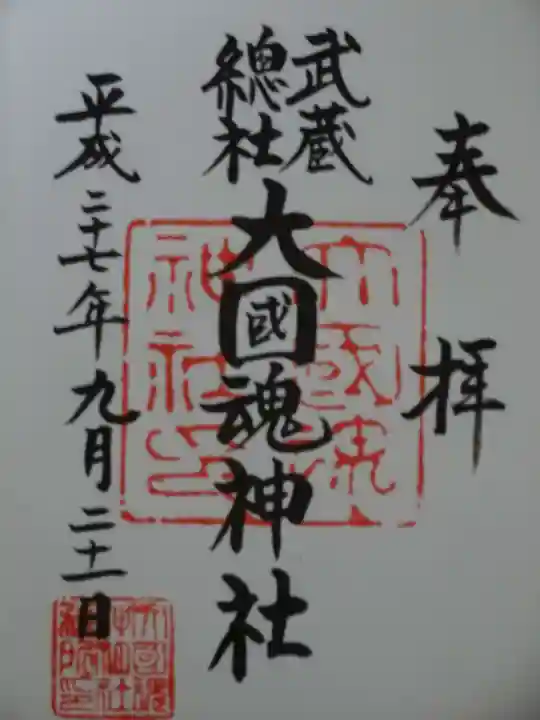 奉拝
武蔵
總社
大國魂神社
平成二十七年九月二十一日
大國魂神社印